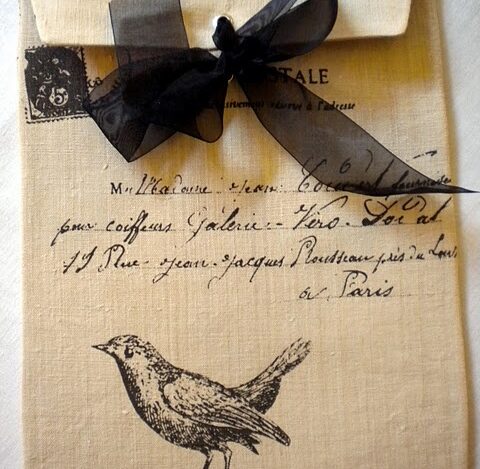 5
STALE
réservé à l'adresse
M Madame Jean
pour coiffeurs Galerie - Véro - Dodat
19 Rue Jean-Jacques Rousseau près du Louv
à Paris